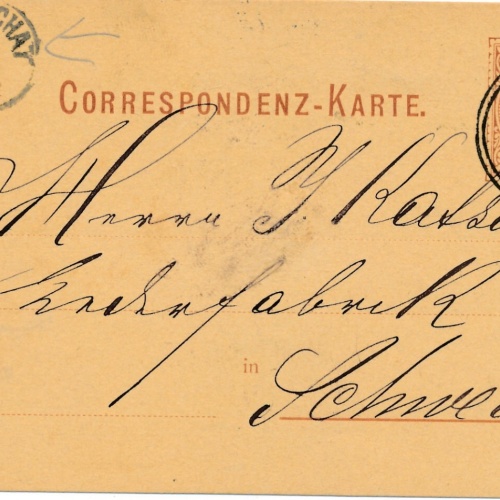 CHAT
CORRESPONDENZ-KARTE.
Herrn J. Katsc
Lederfabrik
in Schwe